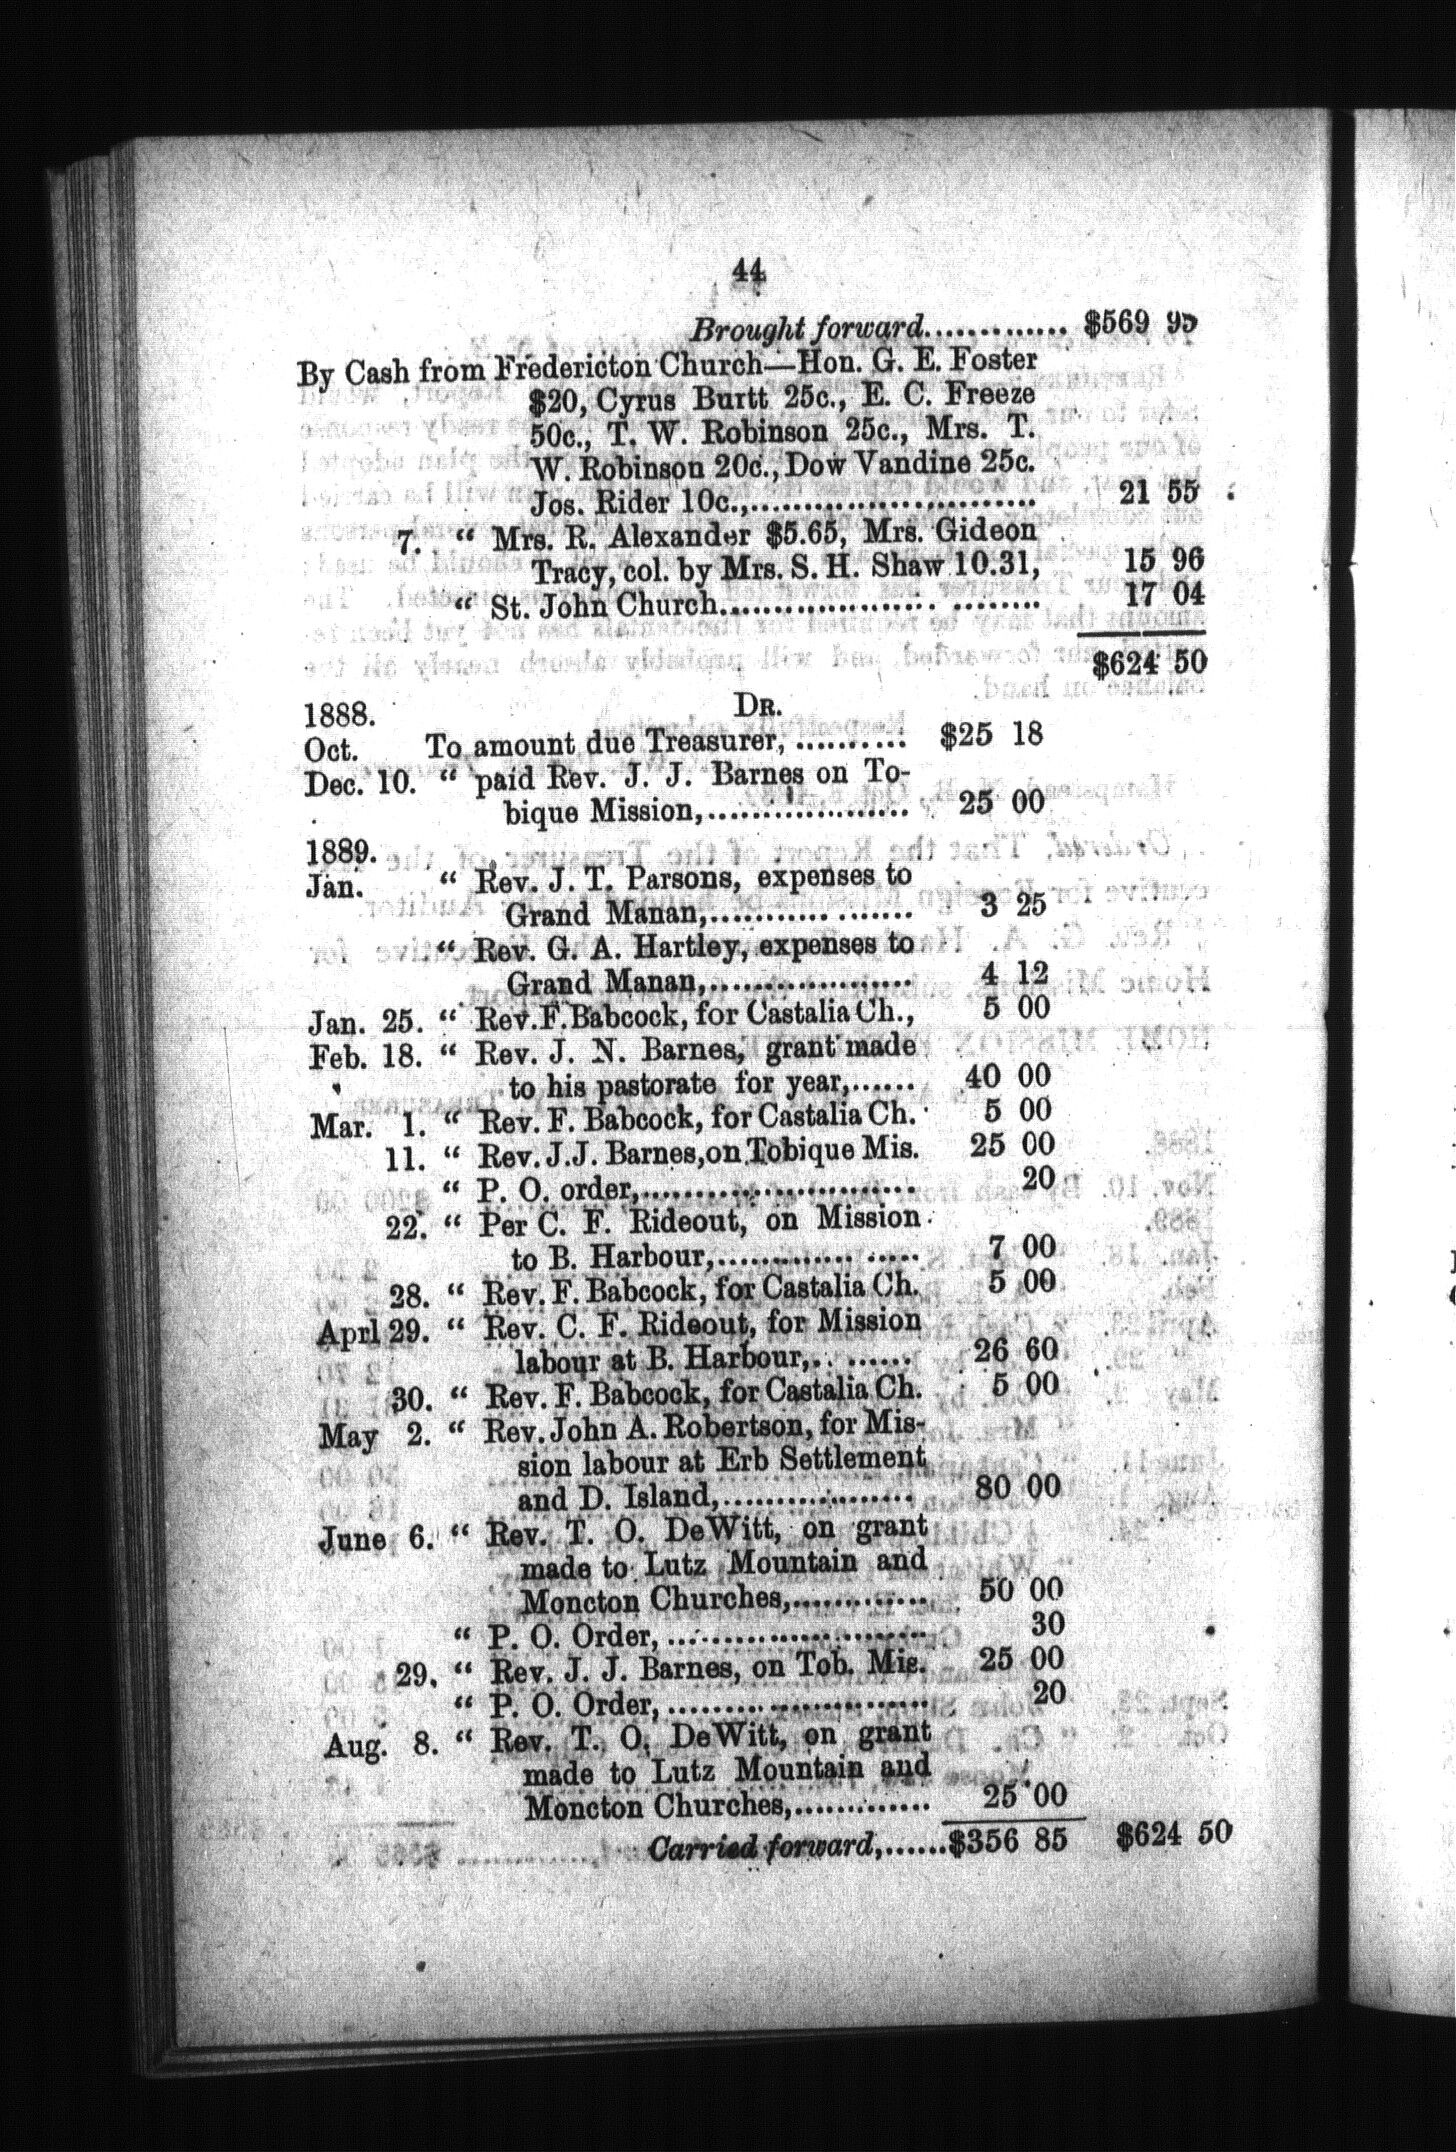 44
Brought forward............. $569 95
By Cash from Fredericton Church—Hon. G. E. Foster
$20, Cyrus Burtt 25c., E. C. Freeze
50c., T. W. Robinson 25c., Mrs. T.
W. Robinson 20c., Dow Vandine 25c.
Jos. Rider 10c.,.......................... 21 55
7. “ Mrs. R. Alexander $5.65, Mrs. Gideon
Tracy, col. by Mrs. S. H. Shaw 10.31, 15 96
“ St. John Church............................. 17 04
$624 50
1888. DR.
Oct. To amount due Treasurer, .......... $25 18
Dec. 10. “ paid Rev. J. J. Barnes on To-
bique Mission,................... 25 00
1889.
Jan. “ Rev. J. T. Parsons, expenses to
Grand Manan,................... 3 25
“ Rev. G. A. Hartley, expenses to
Grand Manan,................... 4 12
Jan. 25. “ Rev. F. Babcock, for Castalia Ch., 5 00
Feb. 18. “ Rev. J. N. Barnes, grant made
to his pastorate for year,...... 40 00
Mar. 1. “ Rev. F. Babcock, for Castalia Ch. 5 00
11. “ Rev. J.J. Barnes, on Tobique Mis. 25 00
“ P. O. order,.......................... 20
22. “ Per C. F. Rideout, on Mission
to B. Harbour,................... 7 00
28. “ Rev. F. Babcock, for Castalia Ch. 5 00
Aprl 29. “ Rev. C. F. Rideout, for Mission
labour at B. Harbour,......... 26 60
30. “ Rev. F. Babcock, for Castalia Ch. 5 00
May 2. “ Rev. John A. Robertson, for Mis-
sion labour at Erb Settlement
and D. Island,.................. 80 00
June 6. “ Rev. T. O. DeWitt, on grant
made to Lutz Mountain and
Moncton Churches,............. 50 00
“ P. O. Order, ........................ 30
29. “ Rev. J. J. Barnes, on Tob. Mis. 25 00
“ P. O. Order, ........................ 20
Aug. 8. “ Rev. T. O. DeWitt, on grant
made to Lutz Mountain and
Moncton Churches,............. 25 00
Carried forward,......$356 85 $624 50